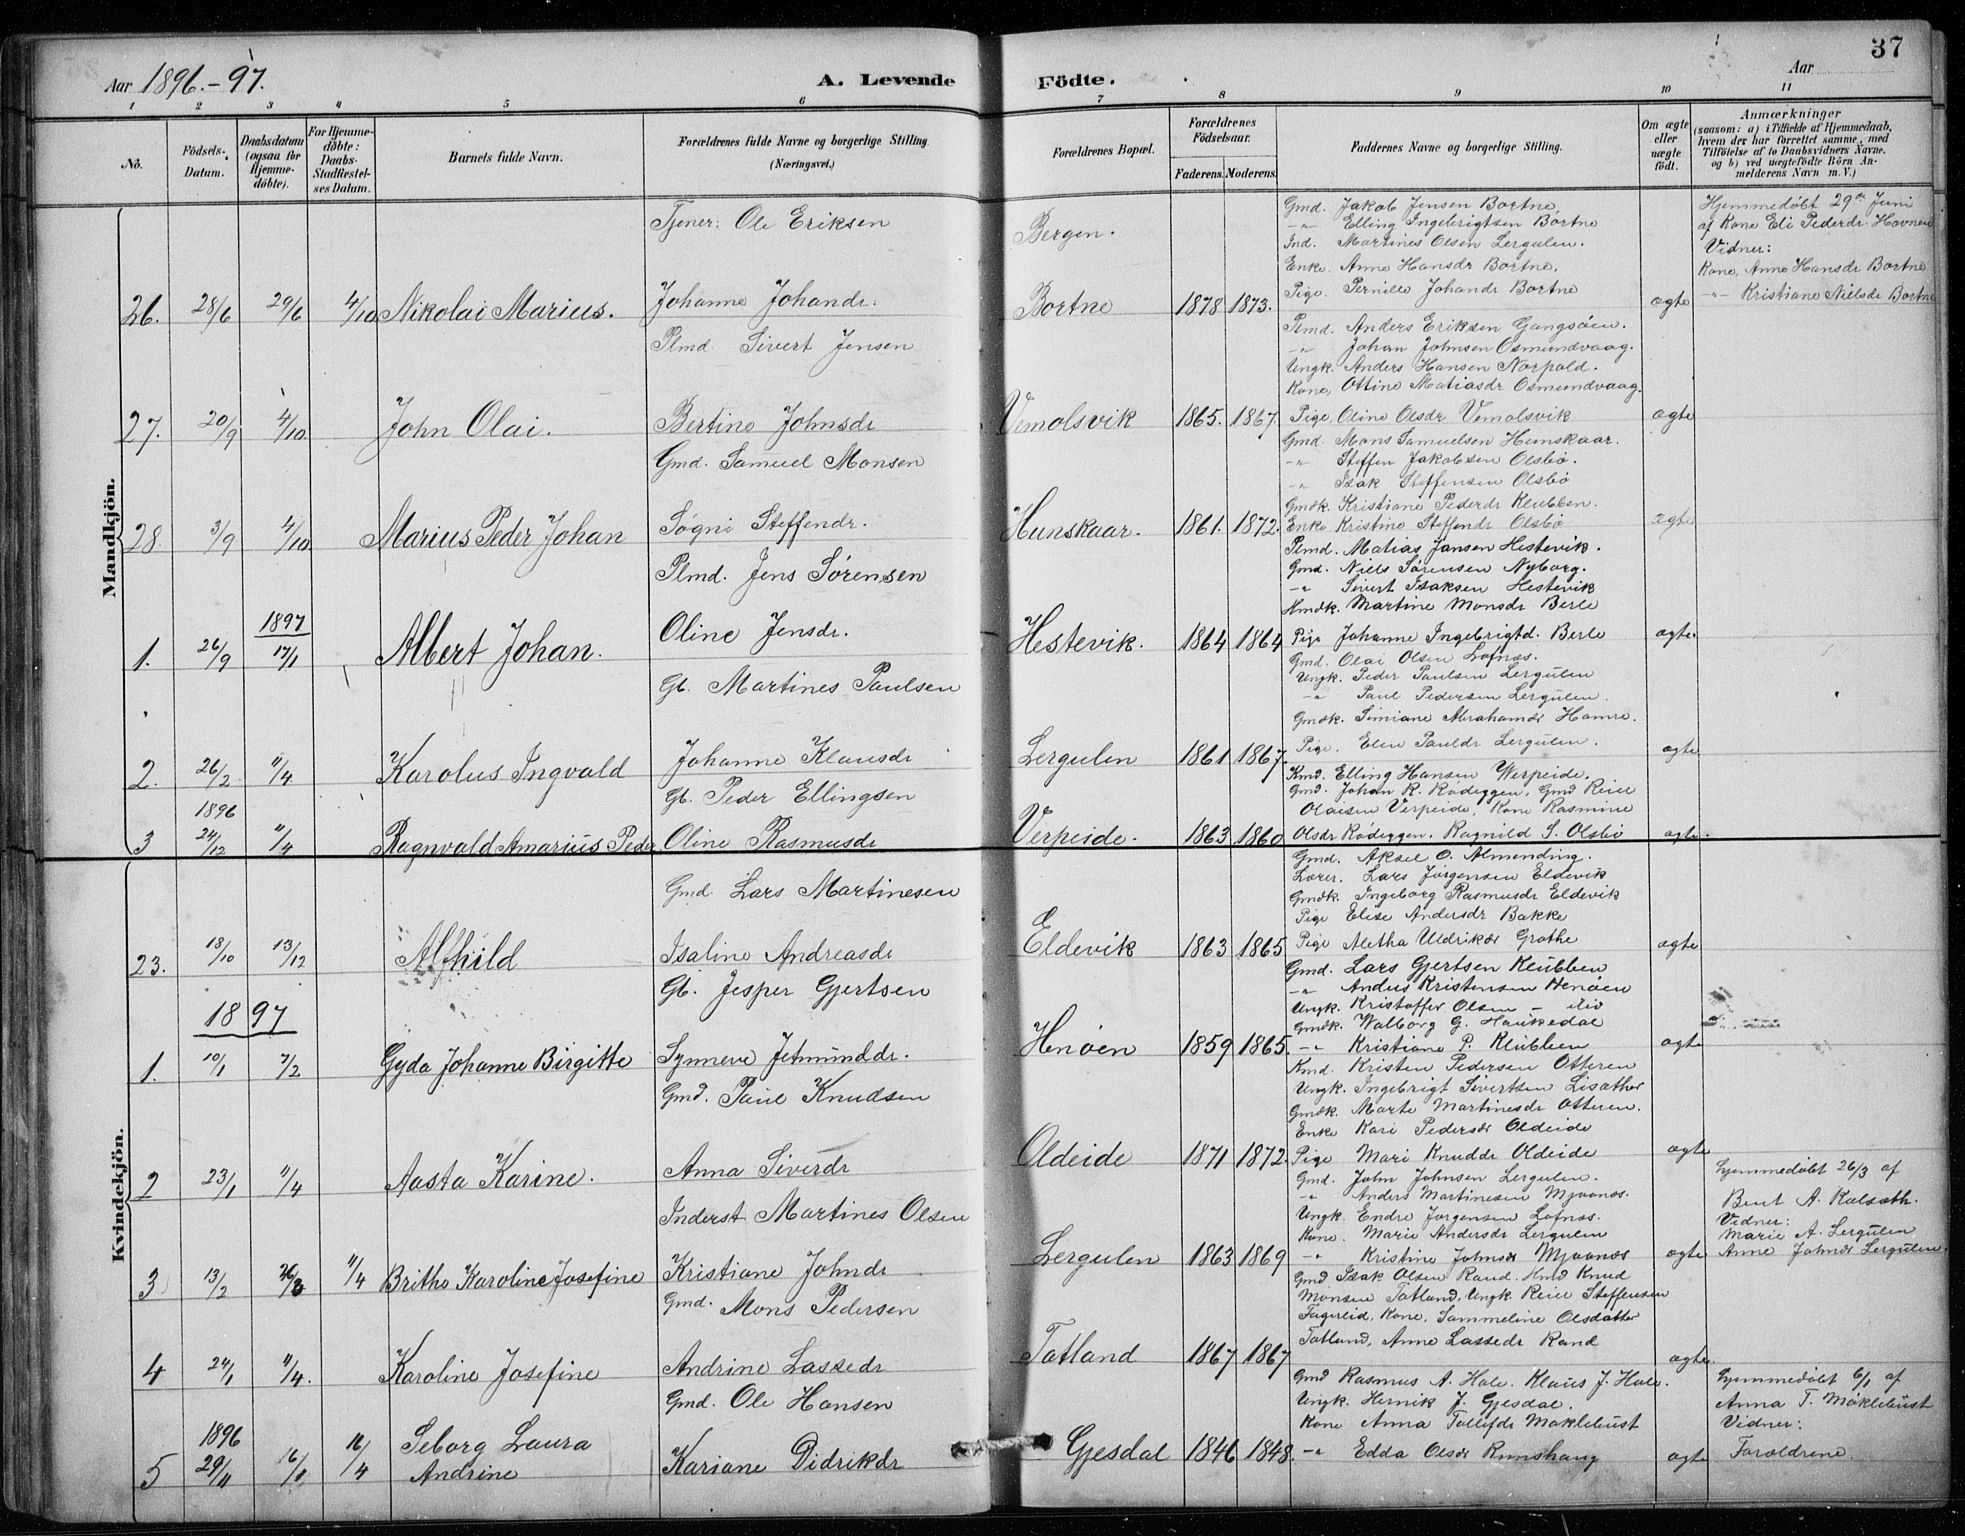 Aar 1896.-97.
A. Levende
Födte.
Aar
37
1 2 3 4 5 6 7 8 9 10 11
No.
Födsels-
Datum.
Daabsdatum
(ogsaa for
Hjemme-
döbte).
For Hjemme-
döbte:
Daabs-
Stadfæstel-
ses Datum.
Barnets fulde Navn.
Forældrenes fulde Navne og borgerlige Stilling.
(Næringsvei.)
Forældrenes Bopæl.
Forældrenes
Födselsaar.
Faderens. Moderens.
Faddernes Navne og borgerlige Stilling.
Om ægte
eller
uægte
födt.
Anmærkninger
(saasom: a) i Tilfælde af Hjemmedaab,
hvem der har forrettet samme, med
Tilföielse af to Daabsvidners Navne.
og b) ved uægtefödte Börn An-
melderens Navn m. V.)
Mandkjön.
26. 28/6 29/6 4/10 Nikolai Marius.
Tjener: Ole Eriksen
Johanne Johandr.
Bergen.
Bortne 1878 1873.
Gmd. Jakob Jensen Bortne
-"- Elling Ingebrigtsen Bortne
Ind. Martines Olsen Lergulen.
Enke. Anne Hansdr Bortne.
Pige. Pernille Johandr Bortne
ægte
Hjemmedøbt 29de Juni
af Kone Eli Pederdr. Hovnen
Vidner:
Kone, Anne Hansdr Bortne
-"- Kristiane Nielsdr Bortne
27. 20/9 4/10 John Olai.
Plmd Sivert Jensen
Bertine Johnsdr
Vemolsvik 1865. 1867.
Plmd. Anders Eriksen Gangsøen.
-"- Johan Johnsen Osmundvaag.
Ungk. Anders Hansen Norpold.
Kone, Ottine Matiasdr Osmundvaag.
Pige Oline Olsdr Vemolsvik
ægte
28. 3/9 4/10 Marius Peder Johan
Gmd. Samuel Monsen
Søgni Steffendr.
Hunskaar. 1861. 1872.
Gmd. Mons Samuelsen Hunskaar.
-"- Steffen Jakobsen Olsbø.
-"- Isak Steffensen Olsbø
Gmdk. Kristiane Pederdr Klubben.
Enke Kristine Steffendr Olsbø
ægte
1897
1. 26/9 17/1 Albert Johan.
Plmd. Jens Sørensen
Oline Jensdr.
Hestevik. 1864 1864
Plmd. Matias Jansen Hestevik.
Gmd. Niels Sørensen Nyborg.
-"- Sivert Isaksen Hestevik
Hmdk. Martine Monsdr Berle
Pige Johanne Ingebrigtd. Berle
ægte
2. 26/2 11/4 Karolus Ingvald
Gb. Martines Paulsen
Johanne Klausdr
Lergulen 1861 1867.
Gmd. Olai Olsen Lofnæs.
Ungk. Peder Paulsen Lergulen
-"- Paul Pedersen Lergulen.
Gmdk. Simiane Abrahamdr Hamre.
Pige. Elen Pauldr Lergulen.
ægte
1896
3 24/12 11/4 Ragnvald Amarius Peder
Gb. Peder Ellingsen
Oline Rasmusdr
Verpeide. 1863 1860
Kmd. Elling Hansen Werpeide.
Gmd. Johan R. Rødeggen, Gmd Reier
Olaisen Verpeide, Kone Rasmine
Olsdr Rødeggen. Ragnild S. Olsbø
ægte.
Kvindekjön.
23. 18/10 13/12 Alfhild
Gmd. Lars Martinesen
Isaline Andreasdr
Eldevik 1863 1865
Gmd. Aksel O. Almending.
Lærer. Lars Jørgensen Eldevik
Gmdk. Ingeborg Rasmusdr Eldevik
Pige Elise Andersdr Bakke
Pige Aletha Uldrikdr Grothe
ægte
1897
1. 10/1 7/2 Gyda Johanne Birgitte
Gb. Jesper Gjertsen
Synneve Jetmunddr.
Henøen 1859 1865.
Gmd. Lars Gjertsen Klubben
-"- Anders Kristensen Henøen
Ungk. Kristoffer Olsen - do
Gmdk. Walborg G. Haukedal
-"- Kristiane P. Klubben
ægte
2 23/1 11/4 Aasta Karine.
Gmd. Paul Knudsen
Anna Siverdr
Oldeide 1871 1872.
Kmd. Kristen Pedersen Otteren
Ungk. Ingebrigt Sivertsen Lisæther
Gmdk. Marte Martinesdr Otteren.
Enke Kari Pedersdr Oldeide
Pige Mari Knuddr Oldeide
ægte
3 13/2 26/3 11/4 Brithe Karoline Josefine
Inderst Martines Olsen
Kristiane Johndr
Lergulen 1863 1869
Gmd. John Johnsen Lergulen.
-"- Anders Martinesen Mjaanæs.
Ungk. Endre Jørgensen Lofnæs.
Kone. Marie Andersdr Lergulen
-"- Kristine Johnsdr Mjaanæs
ægte
Hjemmedøbt 26/3 af
Bent A. Kalsæth.
Vidner:
Marie A. Lergulen
Anne Johnsdr Lergulen.
4 24/1 11/4. Karoline Josefine
Gmd. Mons Pedersen
Andrine Lassedr
Totland 1867 1867
Gmd Isak Olsen Rand. Kmd Knud
Monsen Totland, Ungk Reier Steffensen
Fagerlid, Kone, Sammeline Olsdatter
Totland, Anne Lassedr Rand
ægte.
1896
5 29/11 16/1 16/4 Seborg Laura
Andrine
Gmd. Ole Hansen
Kariane Didrikdr
Gjesdal 1846 1848.
Gmd Rasmus A. Hole. Klaus J. Hole.
Ungk. Henrik J. Gjesdal.
Kone Anna Tollefdr Møklebust
-"- Edda Olsdr Runshaug
ægte
Hjemmedøbt 6/1 af
Anna T. Møklebust
Vidner:
Forældrene.